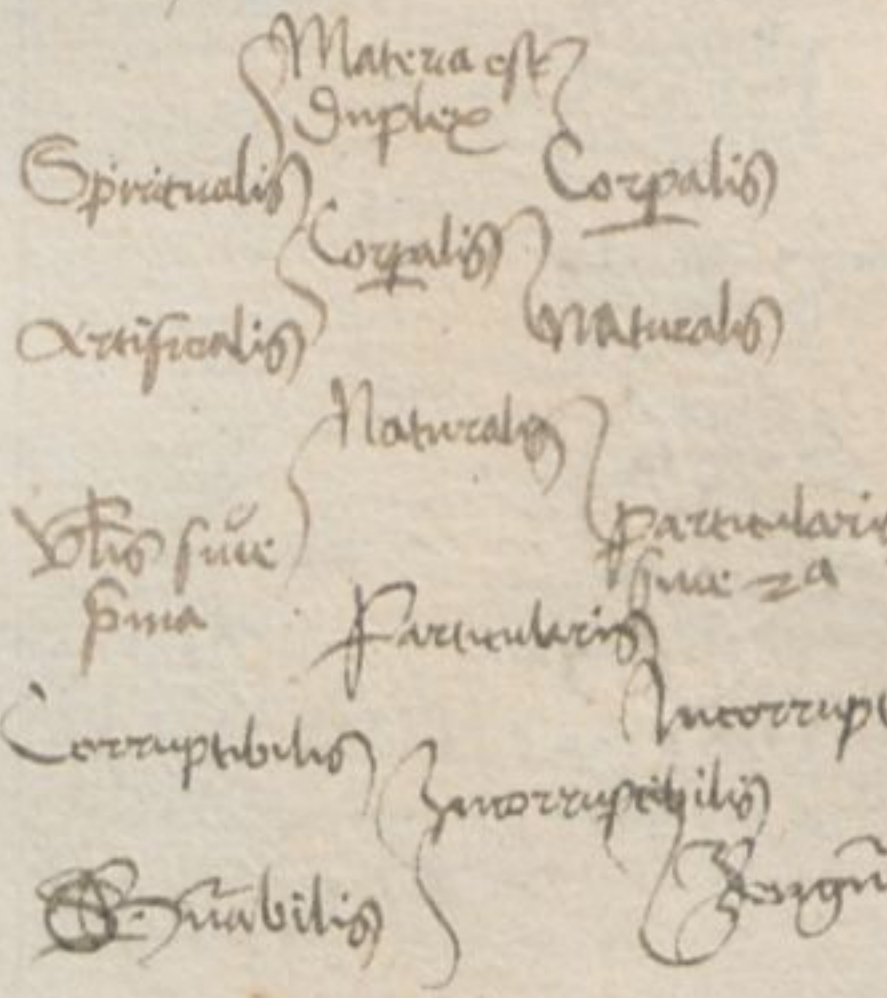 Materia est
duplex
Spiritualis Corpalis
Corpalis
Artificalis Naturalis
Naturalis
Vl̄is siue particularis
p̄ma siue 2ª
Particularis
Incorrupt
Corruptibilis
Incorruptibilis